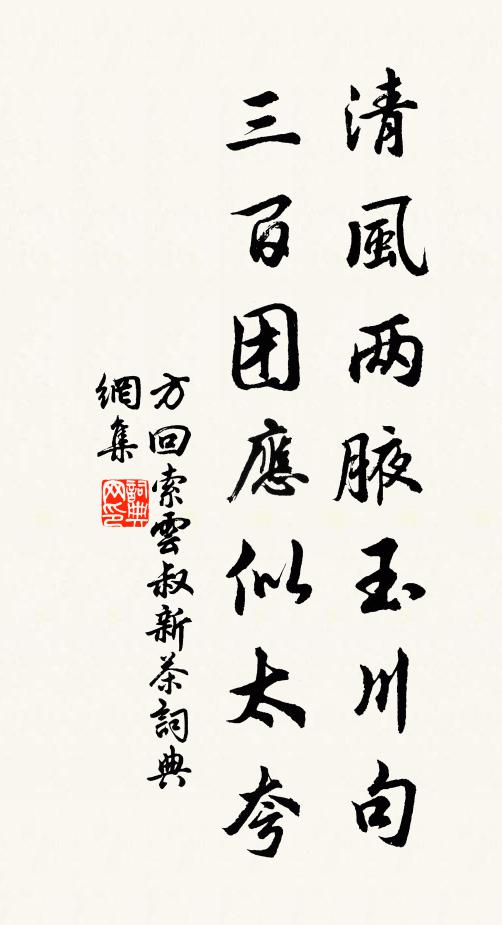 清風两腋玉川句
三百团應似太夸
方回索雲叔新茶詞典
網集
詞典
网印